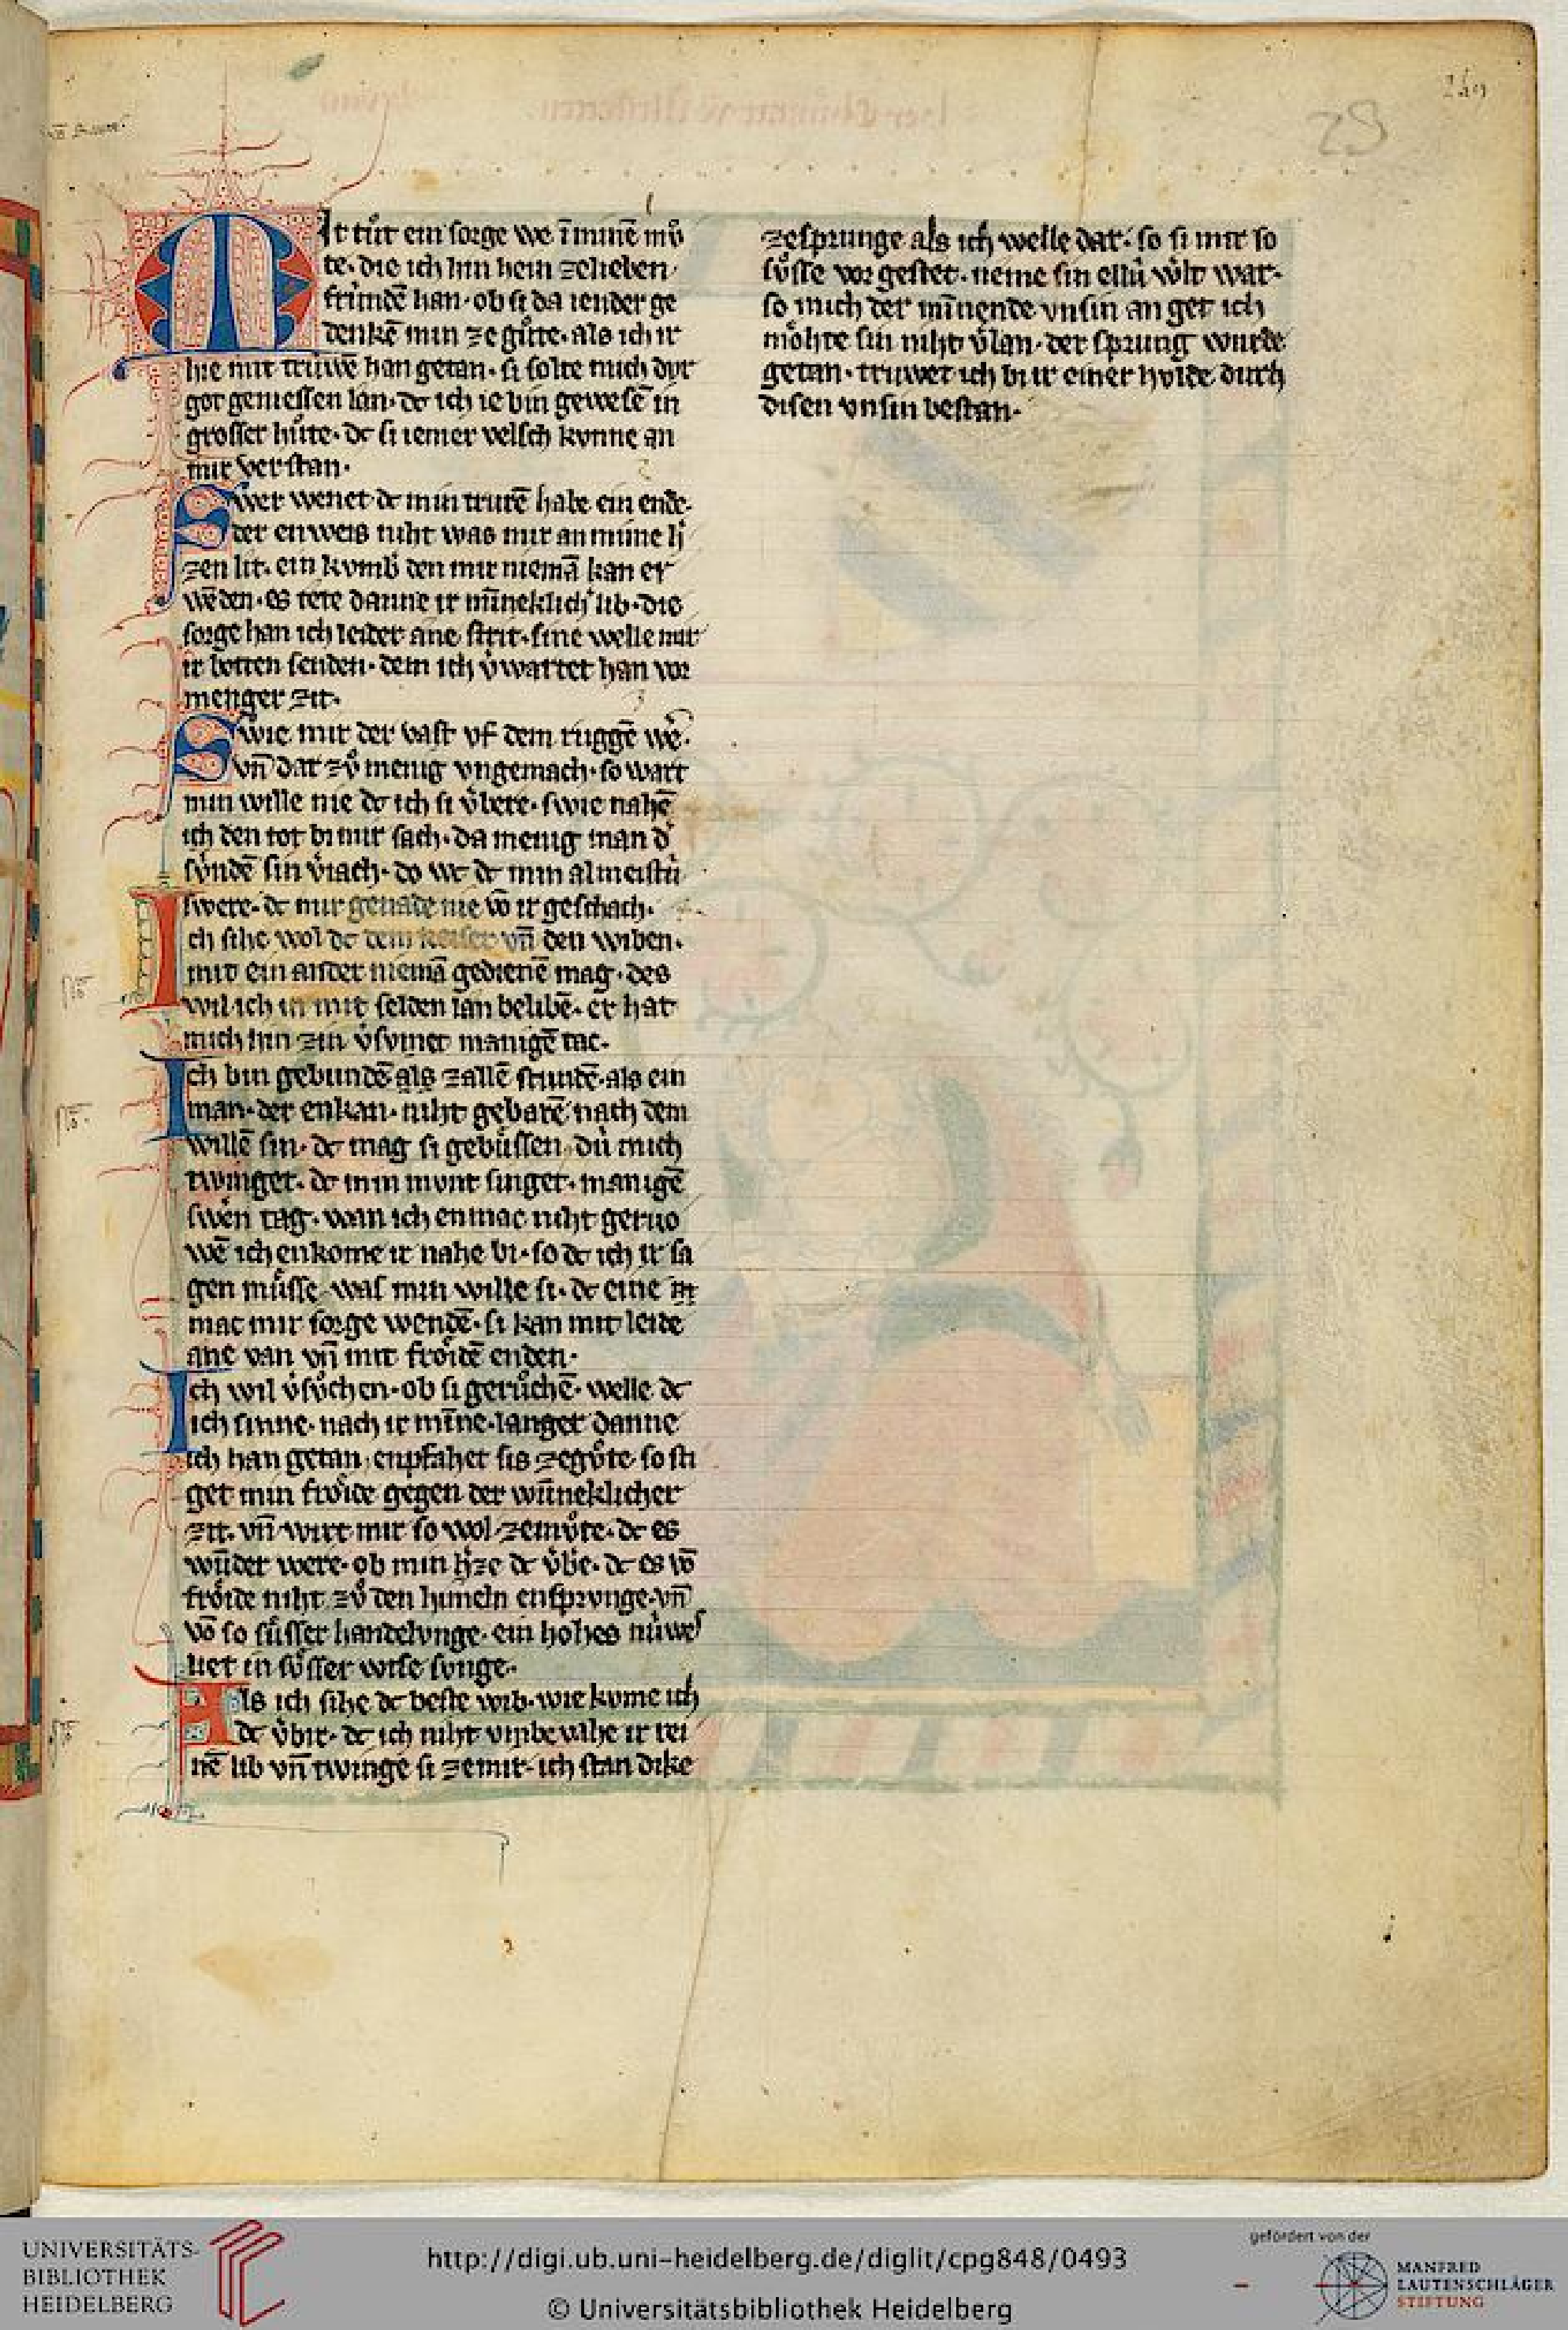 249
28
MIr tuͦt ein sorge we ī mınē muͦ
te· die ich hin hein ze lieben
frúndē han· ob si da iender ge
denkē min ze guͦte· als ich ir
hie mit trúwē han getan· si solte mich dur
got geniessen lan· dc ich ie bin gewesē in
grosser huͦte· dc si iemer velsch kvnne an
mir verstan·
Swer wenet dc min trurē habe ein ende·
der enweis niht was mir an mime h'
zen lit· ein kvmb' den mir niemā kan er
wēden· es tete danne ir mīneklich' lib· die
sorge han ich leider ane strit· sine welle mir
ir botten senden· dem ich v'wartet han vor
menger zit·
Swie mir der vast vf dem ruggē we'·
vn̄ dar zvͦ menig vngemach· so wart
min wille nie dc ich si v'bere· swie nahē
ich den tot bi mir sach· da menig man d'
súndē sin v'iach· do wc dc min almeistú
swere· dc mir genade nie vō ir geschach·
Ich sihe wol dc dem keiser vn̄ den wiben·
mit ein ander niemā gedienē mag· des
wil ich in mit selden lan belibē· er hat
mich hin zin v'svmet manigē tac·
Ich bin gebundē als zallē stundē· als ein
man· der enkan· niht gebarē nach dem
willē sin· dc mag si gebuͤssen· dú mich
twinget· dc min mvnt singet· manigē
swēn tag· wan ich enmac niht geruo
wē ich enkome ir nahe bi· so dc ich ir sa
gen muͤsse was min wille si· dc eine
mac mir sorge wendē· si kan mit leide
ane van vn̄ mit froͤidē enden·
Ich wil v'suͦchen· ob si geruͦchē· welle dc
ich sinne· nach ir mīne· langer danne
ich han getan· enpfahet sis ze guͦte· so sti
get min froͤide gegen der wūneklicher
zit· vn̄ wirt mir so wol ze muͦte· dc es
wūder were· ob min h'ze dc v'b'e· dc es vō
froͤide niht zvͦ den himeln ensprvnge· vn̄
vō so suͤsser handelvnge· ein hohes núwes
liet in svͤsser wise svnge·
Als ich sihe dc beste wib· wie kvme ich
dc v'bir· dc ich niht vmbevahe ir rei
nē lib vn̄ twinge si ze mir· ich stan dike
ze sprunge als ich welle dar· so si mir so
svͤsse vor gestet· neme sin ellú w'lt war·
so mich der mīnende vnsin an get ich
moͤhte sin niht v'lan· der sprung wurde
getan· trúwet ich bi ir einer hvlde durch
disen vnsin bestan·
UNIVERSITÄTS-
BIBLIOTHEK
HEIDELBERG
http://digi.ub.uni-heidelberg.de/diglit/cpg848/0493
© Universitätsbibliothek Heidelberg
gefördert von der
MANFRED
LAUTENSCHLÄGER
STIFTUNG